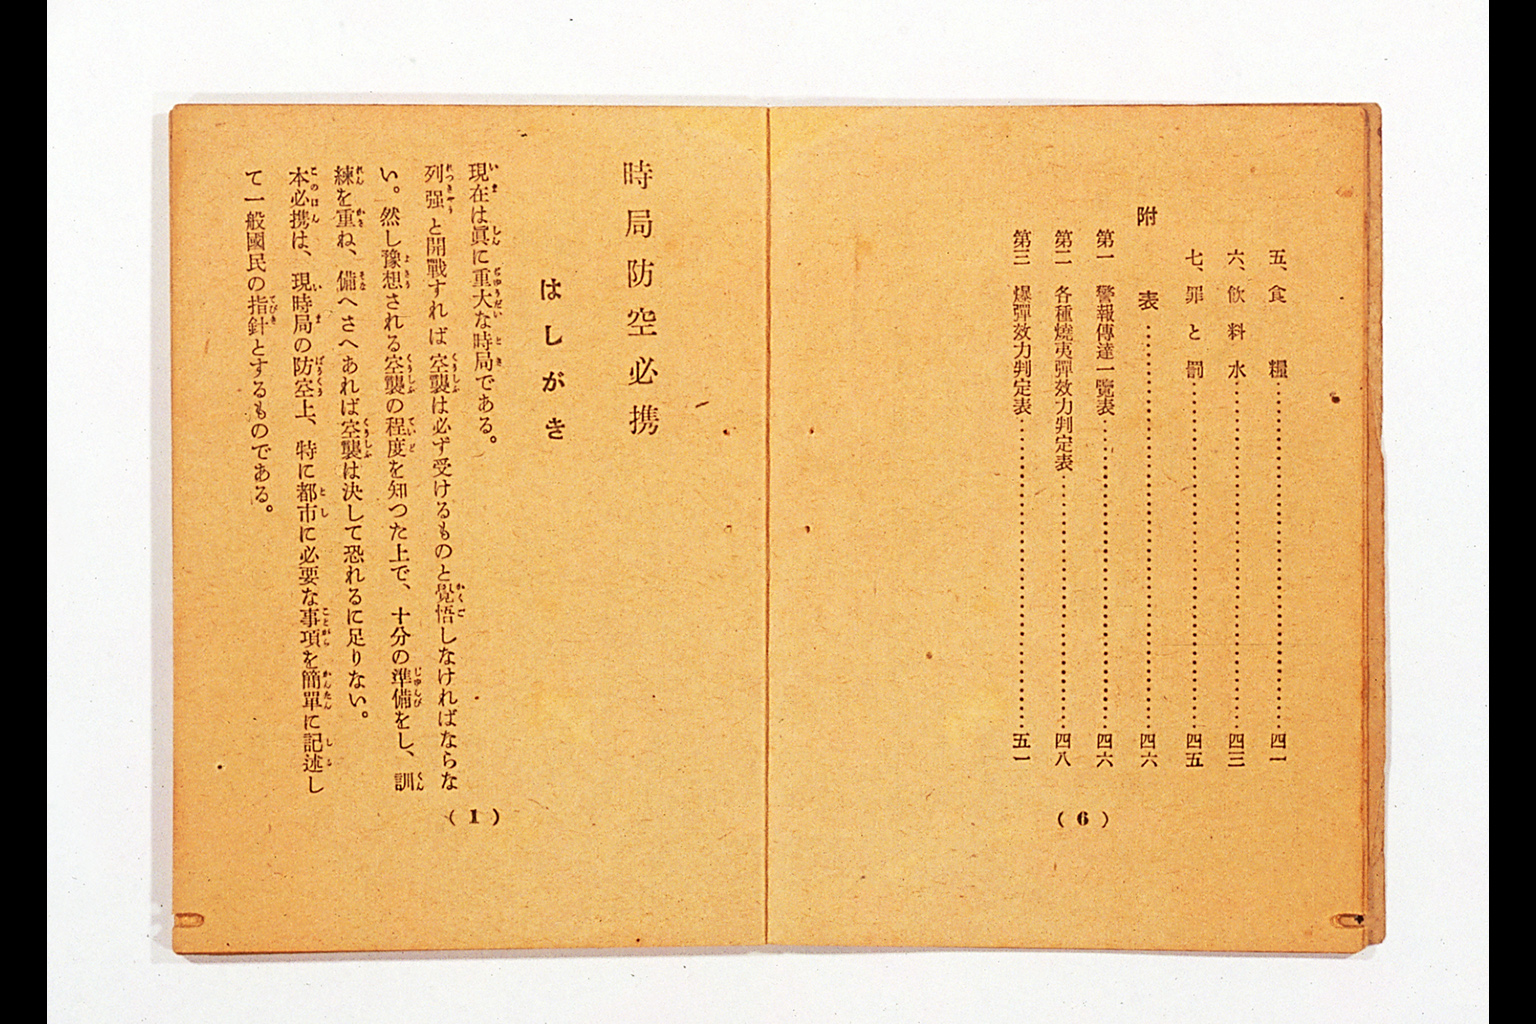 五、食糧……………………四一
六、飮料水……………………四三
七、罪と罰……………………四五
附表……………………四六
第一 警報傳達一覽表……………………四六
第二 各種燒夷彈效力判定表……………………四八
第三 爆彈效力判定表……………………五一
(6)
時局防空必携
はしがき
現在は眞に重大な時局である。
列强と開戰すれば空襲は必ず受けるものと覺悟しなければならな
い。然し豫想される空襲の程度を知つた上で、十分の準備をし、訓
練を重ね、備へさへあれば空襲は決して恐れるに足りない。
本必携は、現時局の防空上、特に都市に必要な事項を簡單に記述し
て一般國民の指針とするものである。
(1)